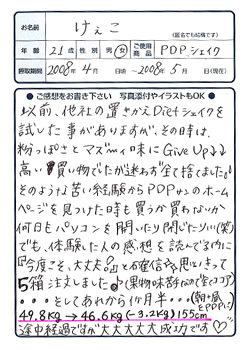 お名前 けぇこ
(匿名でも結構です)
年齢 21才 性別 男・女 ご使用商品 PDPシェイク
摂取期間 2008年4月 日頃 ~2008年5月 日(現在)
●ご感想をお書き下さい 写真添付やイラストもOK●
以前、他社の置きかえDietシェイクを
試した事がありますが、その時は、
粉っぽさとマズい味にGive Up↓↓
高い買い物でたが迷わず全て捨てました。
そのような苦い経験からPDPサンのホーム
ページを見つけた時も買うか買わないか
何日もパソコンを開いたり閉じたり(笑)
でも、体験した人の感想を読んでる内に
『今度こそ、大丈夫。』と確信☆思いきって
5箱注文しました
・・・そしてあれから1か月半・・・
49.8kg→46.6kg(-3.2kg)155cm
途中経過ですが大大大大大成功です♡